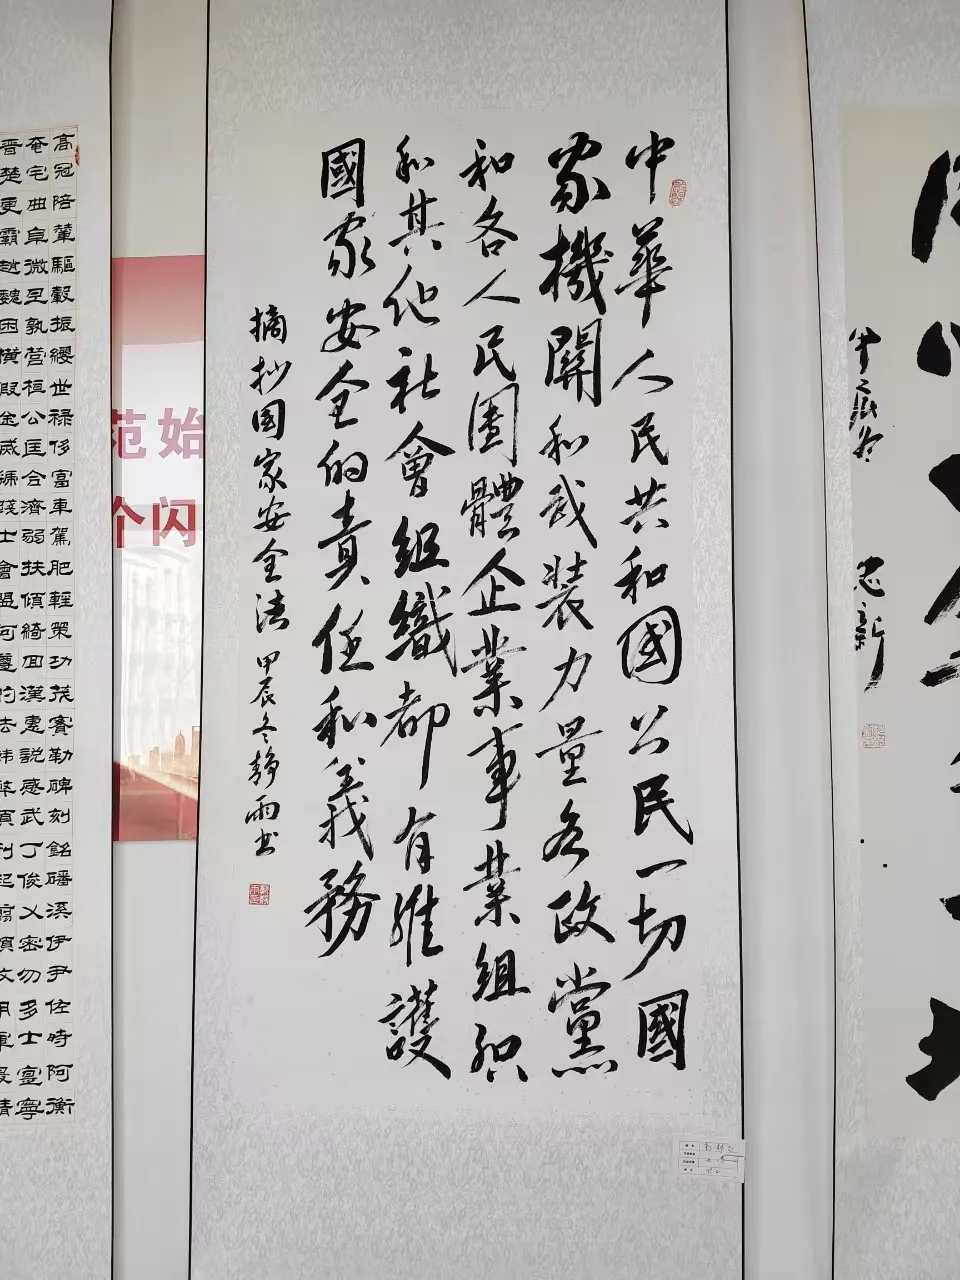 中華人民共和國公民一切國
家機關和武裝力量各政黨
和各人民團體企業事業組织
和其他社會組織都有維護
國家安全的責任和義務
摘抄国家安全法 甲辰冬靜雨书
高冠陪輦驅轂振纓世禄侈富車駕肥輕策功茂實勒碑刻銘磻溪伊尹佐時阿衡
奄宅曲阜微旦孰營桓公匡合濟弱扶傾綺回漢惠説感武丁俊乂密勿多士寔寧
晋楚更霸趙魏困横假途滅虢踐土會盟何遵約法韓弊煩刑起翦頗牧用軍最精
范始
个闪
忠新